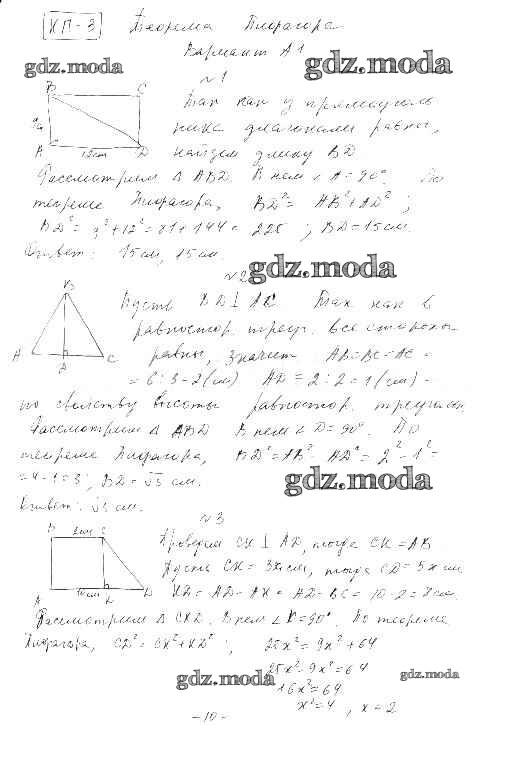 КП-3 Теорема Пифагора.
Вариант А1
gdz.moda
gdz.moda
№1
B C
9 A D
12см
Так как у прямоуголь
ника диагонали равны,
найдем длину BD
Рассмотрим Δ ABD. В нем ∠A = 90°. По
теореме Пифагора, BD² = AB² + AD² ;
BD² = 9² + 12² = 81 + 144 = 225 ; BD = 15 см.
Ответ: 15 см, 15 см.
gdz.moda
№2
B
A D C
Пусть BD ⊥ AC. Так как в
равностор. треуг. все стороны
равны, значит AB = BC = AC =
= 6 : 3 = 2 (см) AD = 2 : 2 = 1 (см) -
по свойству высоты равностор. треугольн
Рассмотрим Δ ABD В нем ∠D = 90°. По
теореме Пифагора, BD² = AB² - AD² = 2² - 1² =
= 4 - 1 = 3 ; BD = √3 см.
gdz.moda
Ответ: √3 см.
№3
B 2см C
A 10см K D
Проведем CK ⊥ AD, тогда CK = AB
Пусть CK = 3x см, тогда CD = 5x см
KD = AD - AK = AD - BC = 10 - 2 = 8 см
Рассмотрим Δ CKD. В нем ∠K = 90°. По теореме
Пифагора, CD² = CK² + KD² ; 25x² = 9x² + 64
25x² - 9x² = 64
gdz.moda
gdz.moda
16x² = 64
x² = 4 , x = 2
- 10 -